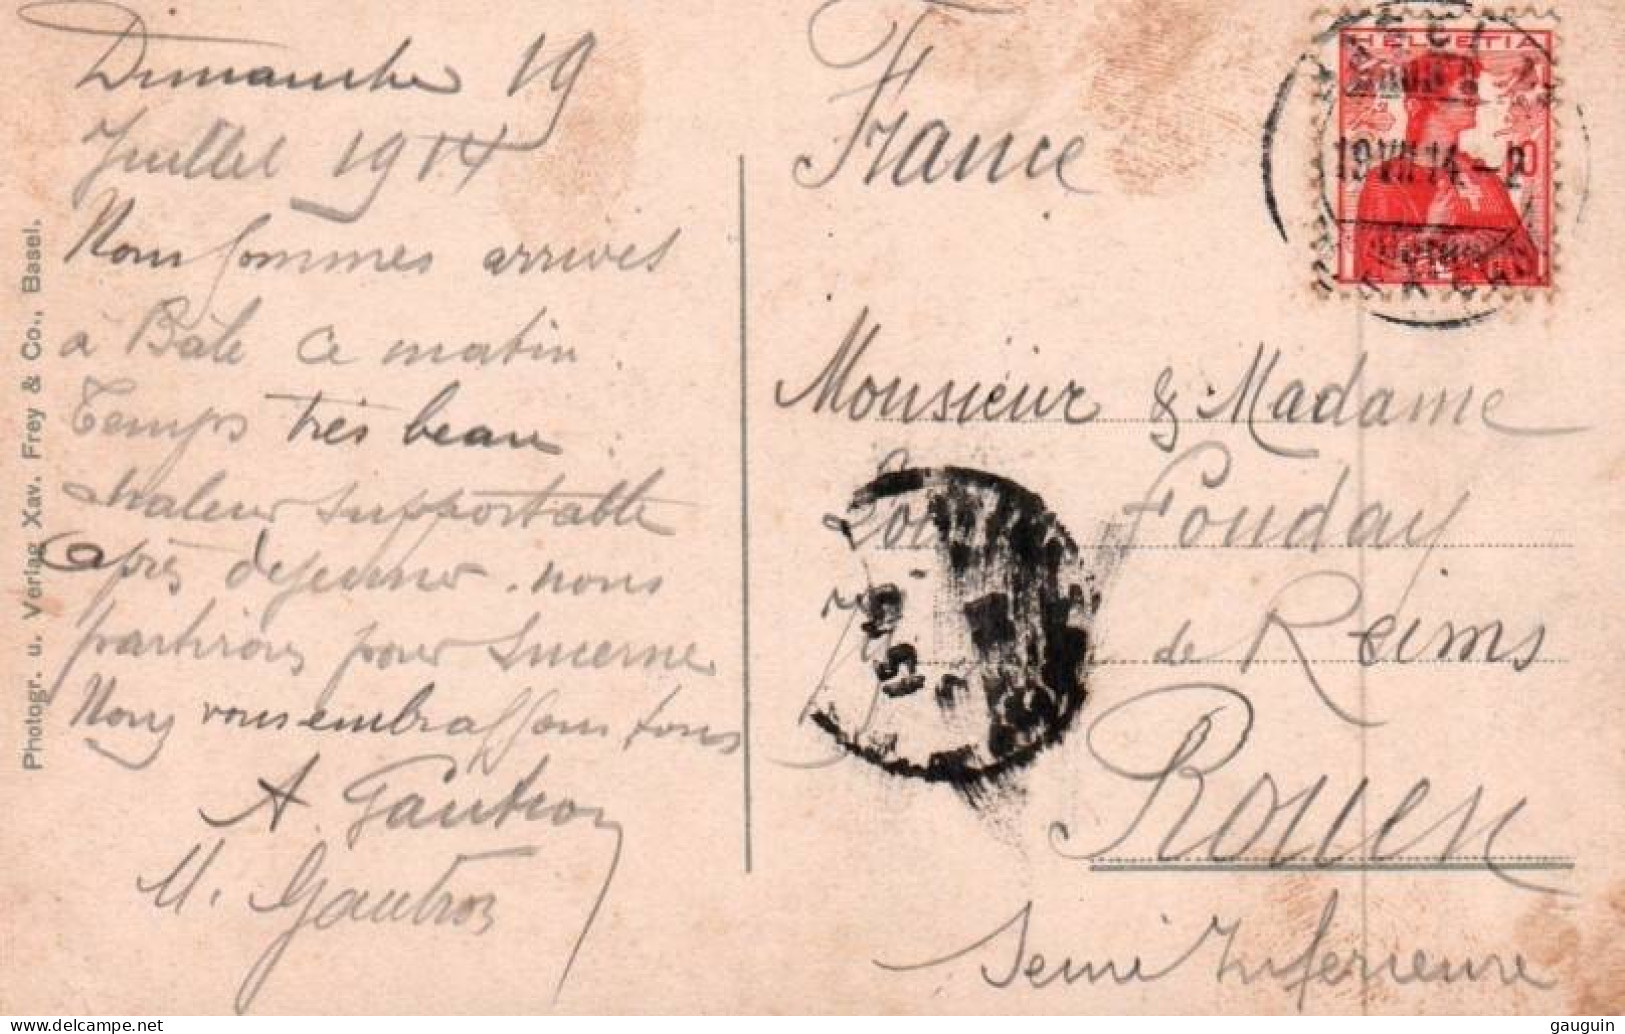 Dimanche 19
Juillet 1914
Nous sommes arrivés
à Bâle ce matin.
Temps très beau
chaleur supportable
après déjeuner. nous
partirons pour Lucerne
Nous vous embrassons tous
A. Gautron
M. Gautron
Photogr. u. Verlag Xav. Frey & Co., Basel.
France
HELVETIA
10
19 VII 14 - 2
Monsieur & Madame
Fouday
de Reims
Rouen
Seine Inférieure
gauguin © www.delcampe.net